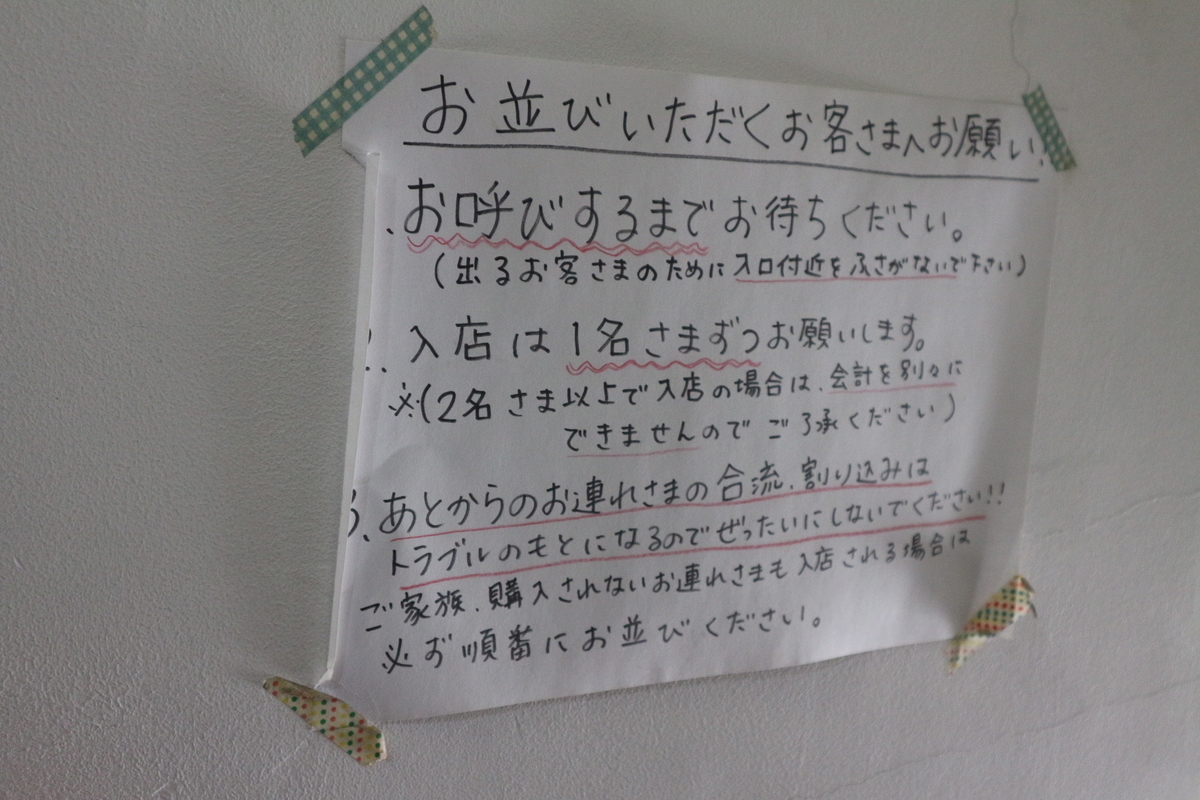 お並びいただくお客さまへお願い.
.お呼びするまでお待ちください。
(出るお客さまのために入口付近をふさがないで下さい)
入店は1名さまずつお願いします。
※(2名さま以上で入店の場合は、会計を別々に
できませんのでご了承ください)
3、あとからのお連れさまの合流、割り込みは
トラブルのもとになるのでぜったいにしないでください!!
ご家族、購入されないお連れさまも入店される場合は
※お順番にお並びください。